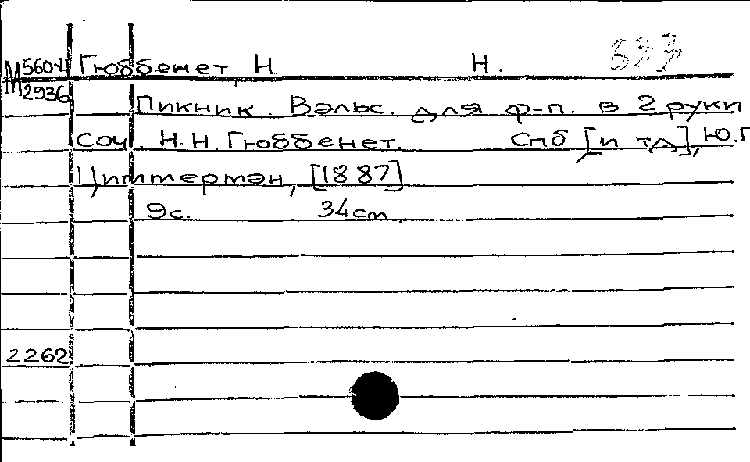 М560-VI Гюббенет, Н. Н. 533
2936
Пикник. Вальс. для ф-п. в 2 руки
Соч. Н.Н. Гюббенет. Спб [и т.д.], Ю.Г.
Циммерман, [1887]
9с. 34cm.
2262